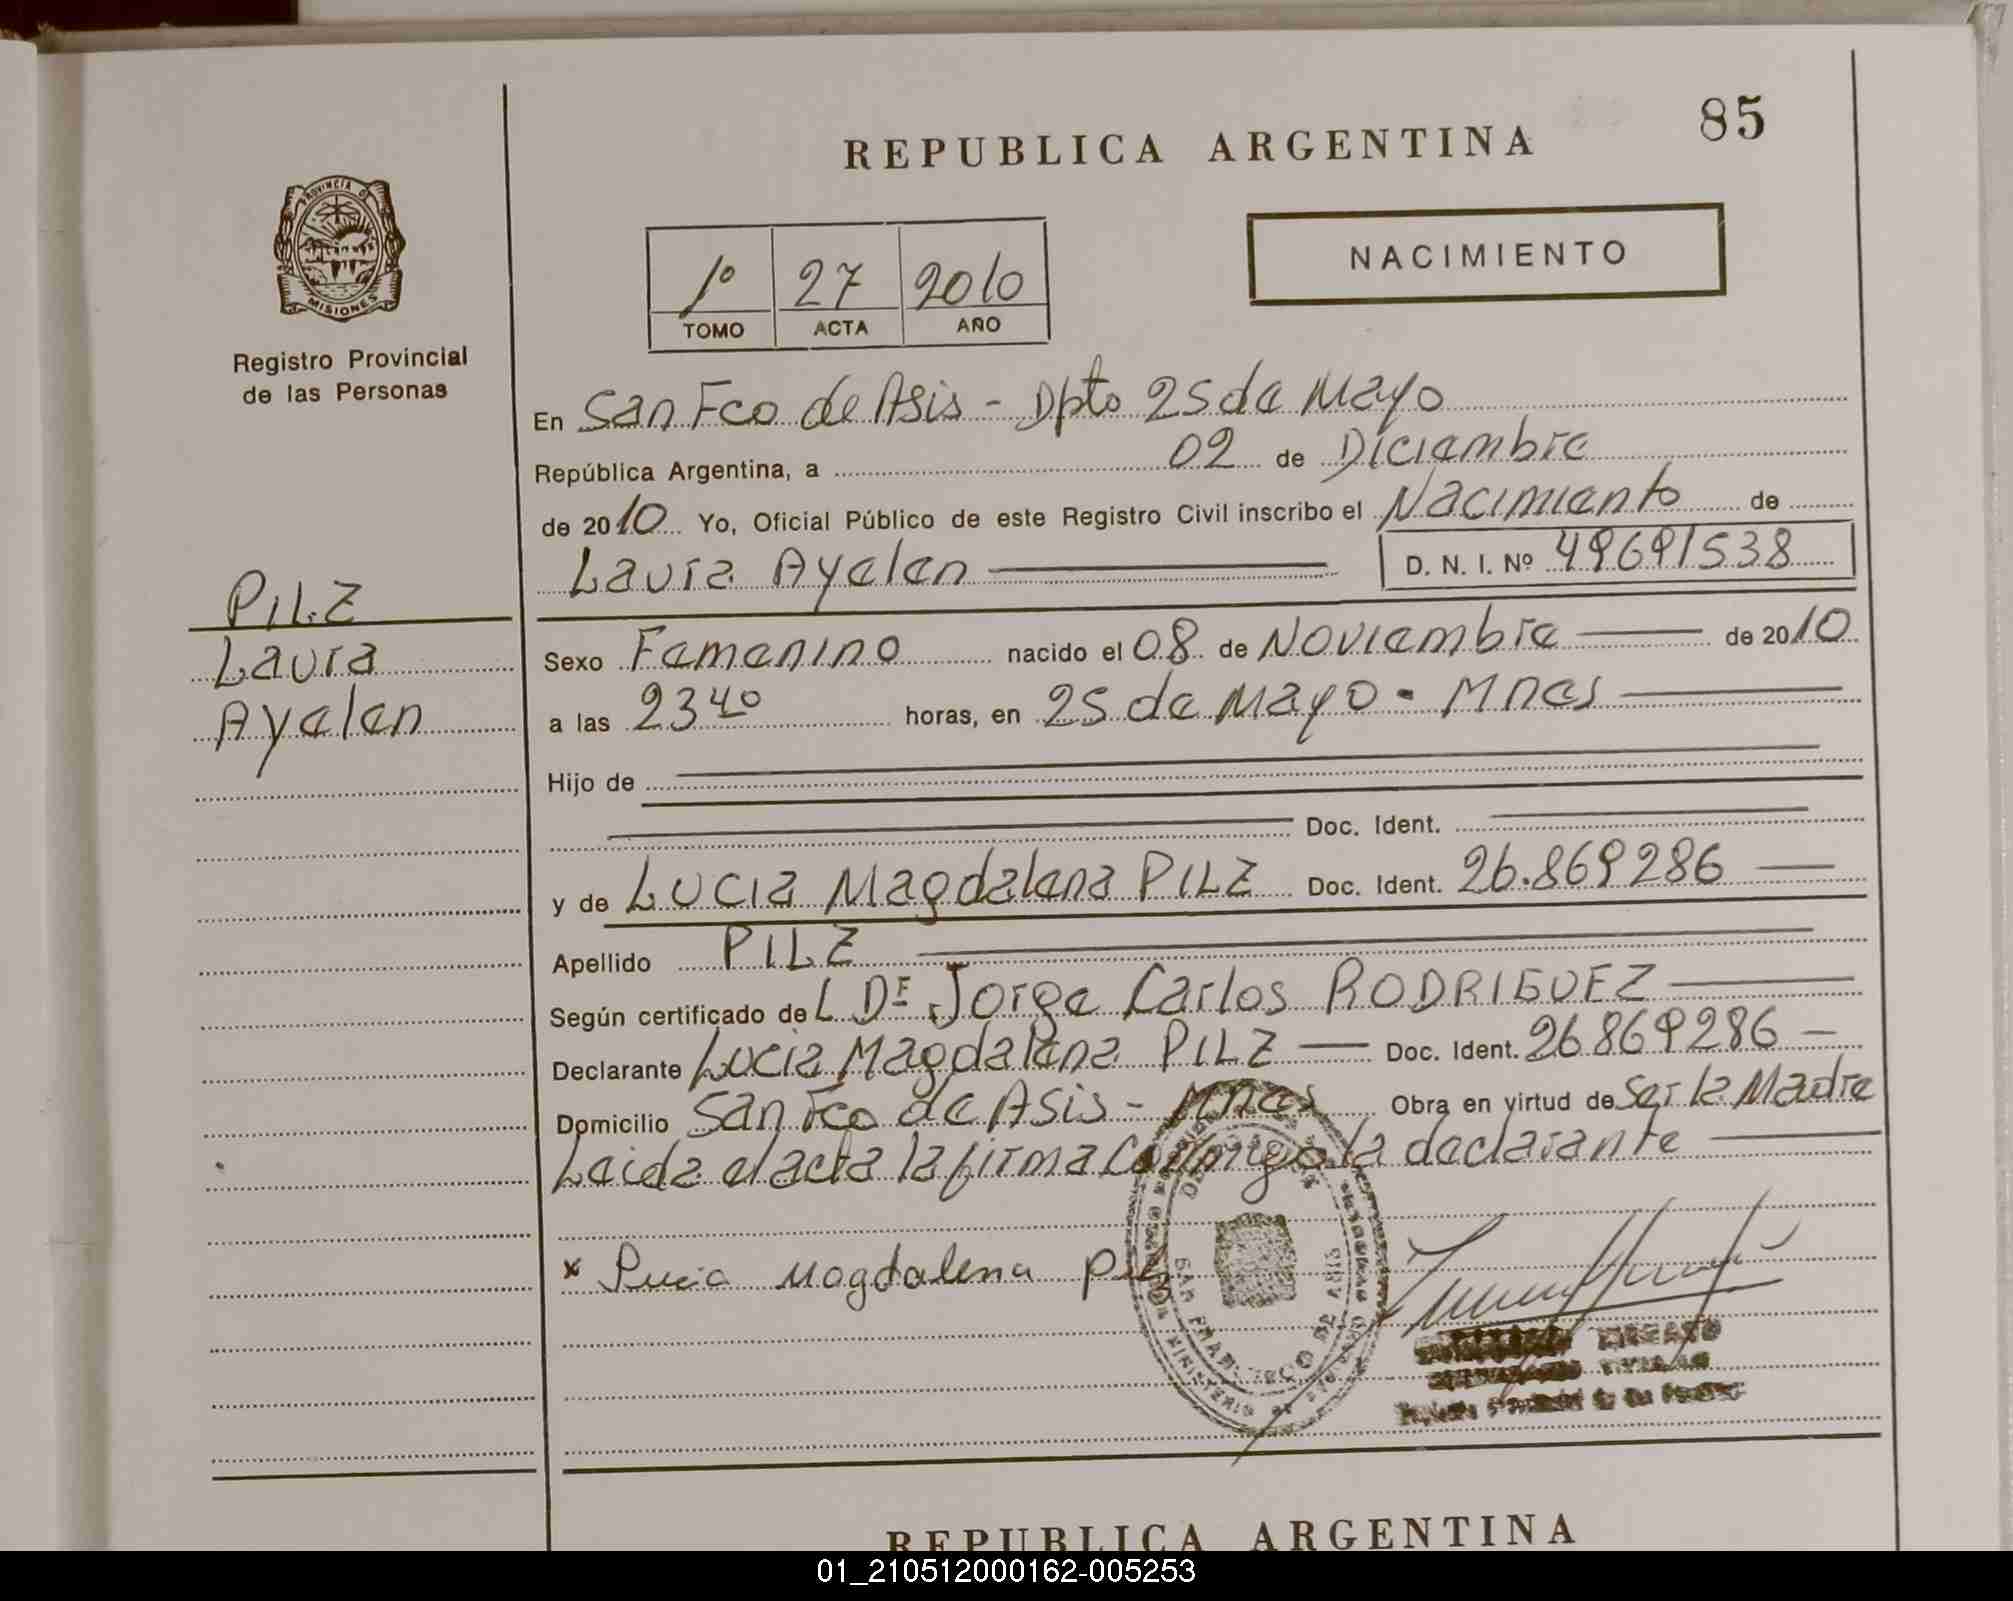 85
REPUBLICA ARGENTINA
NACIMIENTO
1º 27 2010
TOMO ACTA AÑO
PROVINCIA DE
MISIONES
Registro Provincial
de las Personas
PILZ
Laura
Ayelen
En San Fco de Asis - Dpto 25 de Mayo
República Argentina, a 02 de Diciembre
de 2010 Yo, Oficial Público de este Registro Civil inscribo el Nacimiento de
Laura Ayelen D. N. I. Nº 49691538
Sexo Femenino nacido el 08 de Noviembre de 2010
a las 23 40 horas, en 25 de Mayo - Mnes
Hijo de
Doc. Ident.
y de Lucia Magdalena PILZ Doc. Ident. 26.869286
Apellido PILZ
Según certificado de L DE Jorge Carlos RODRIGUEZ
Declarante Lucia Magdalena PILZ Doc. Ident. 26869286
Domicilio San Fco de Asis - Mnes Obra en virtud de Ser la Madre
Leida el acta la firma Conmigo la declarante
x Lucia Magdalena Pilz
SAN FRANCISCO DE ASIS
REPUBLICA ARGENTINA
01_210512000162-005253